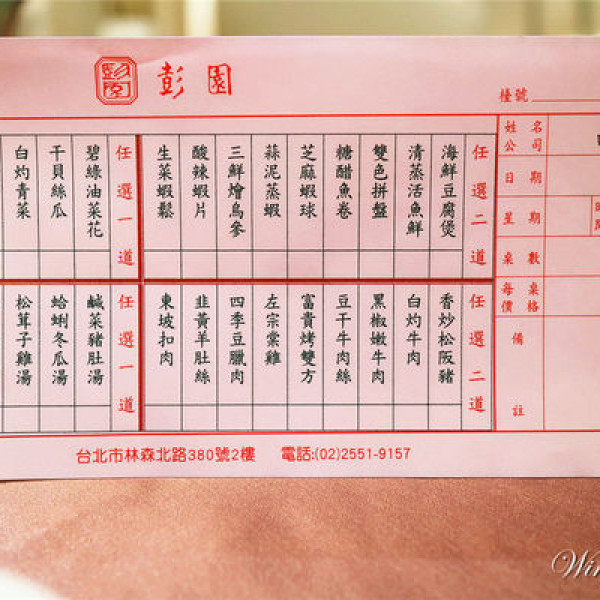 彭園
彭園
檯號
姓名
公司
日期
星期
桌數
每桌
價格
備註
任選二道
海鮮豆腐煲
清蒸活魚鮮
雙色拼盤
糖醋魚卷
芝麻蝦球
蒜泥蒸蝦
三鮮燴烏參
酸辣蝦片
生菜蝦鬆
任選一道
碧綠油菜花
干貝絲瓜
白灼青菜
任選二道
香炒松阪豬
白灼牛肉
黑椒嫩牛肉
豆干牛肉絲
富貴烤雙方
左宗棠雞
四季豆臘肉
韭黃羊肚絲
東坡扣肉
任選一道
鹹菜豬肚湯
蛤蜊冬瓜湯
松茸子雞湯
台北市林森北路380號2樓 電話:(02)2551-9157